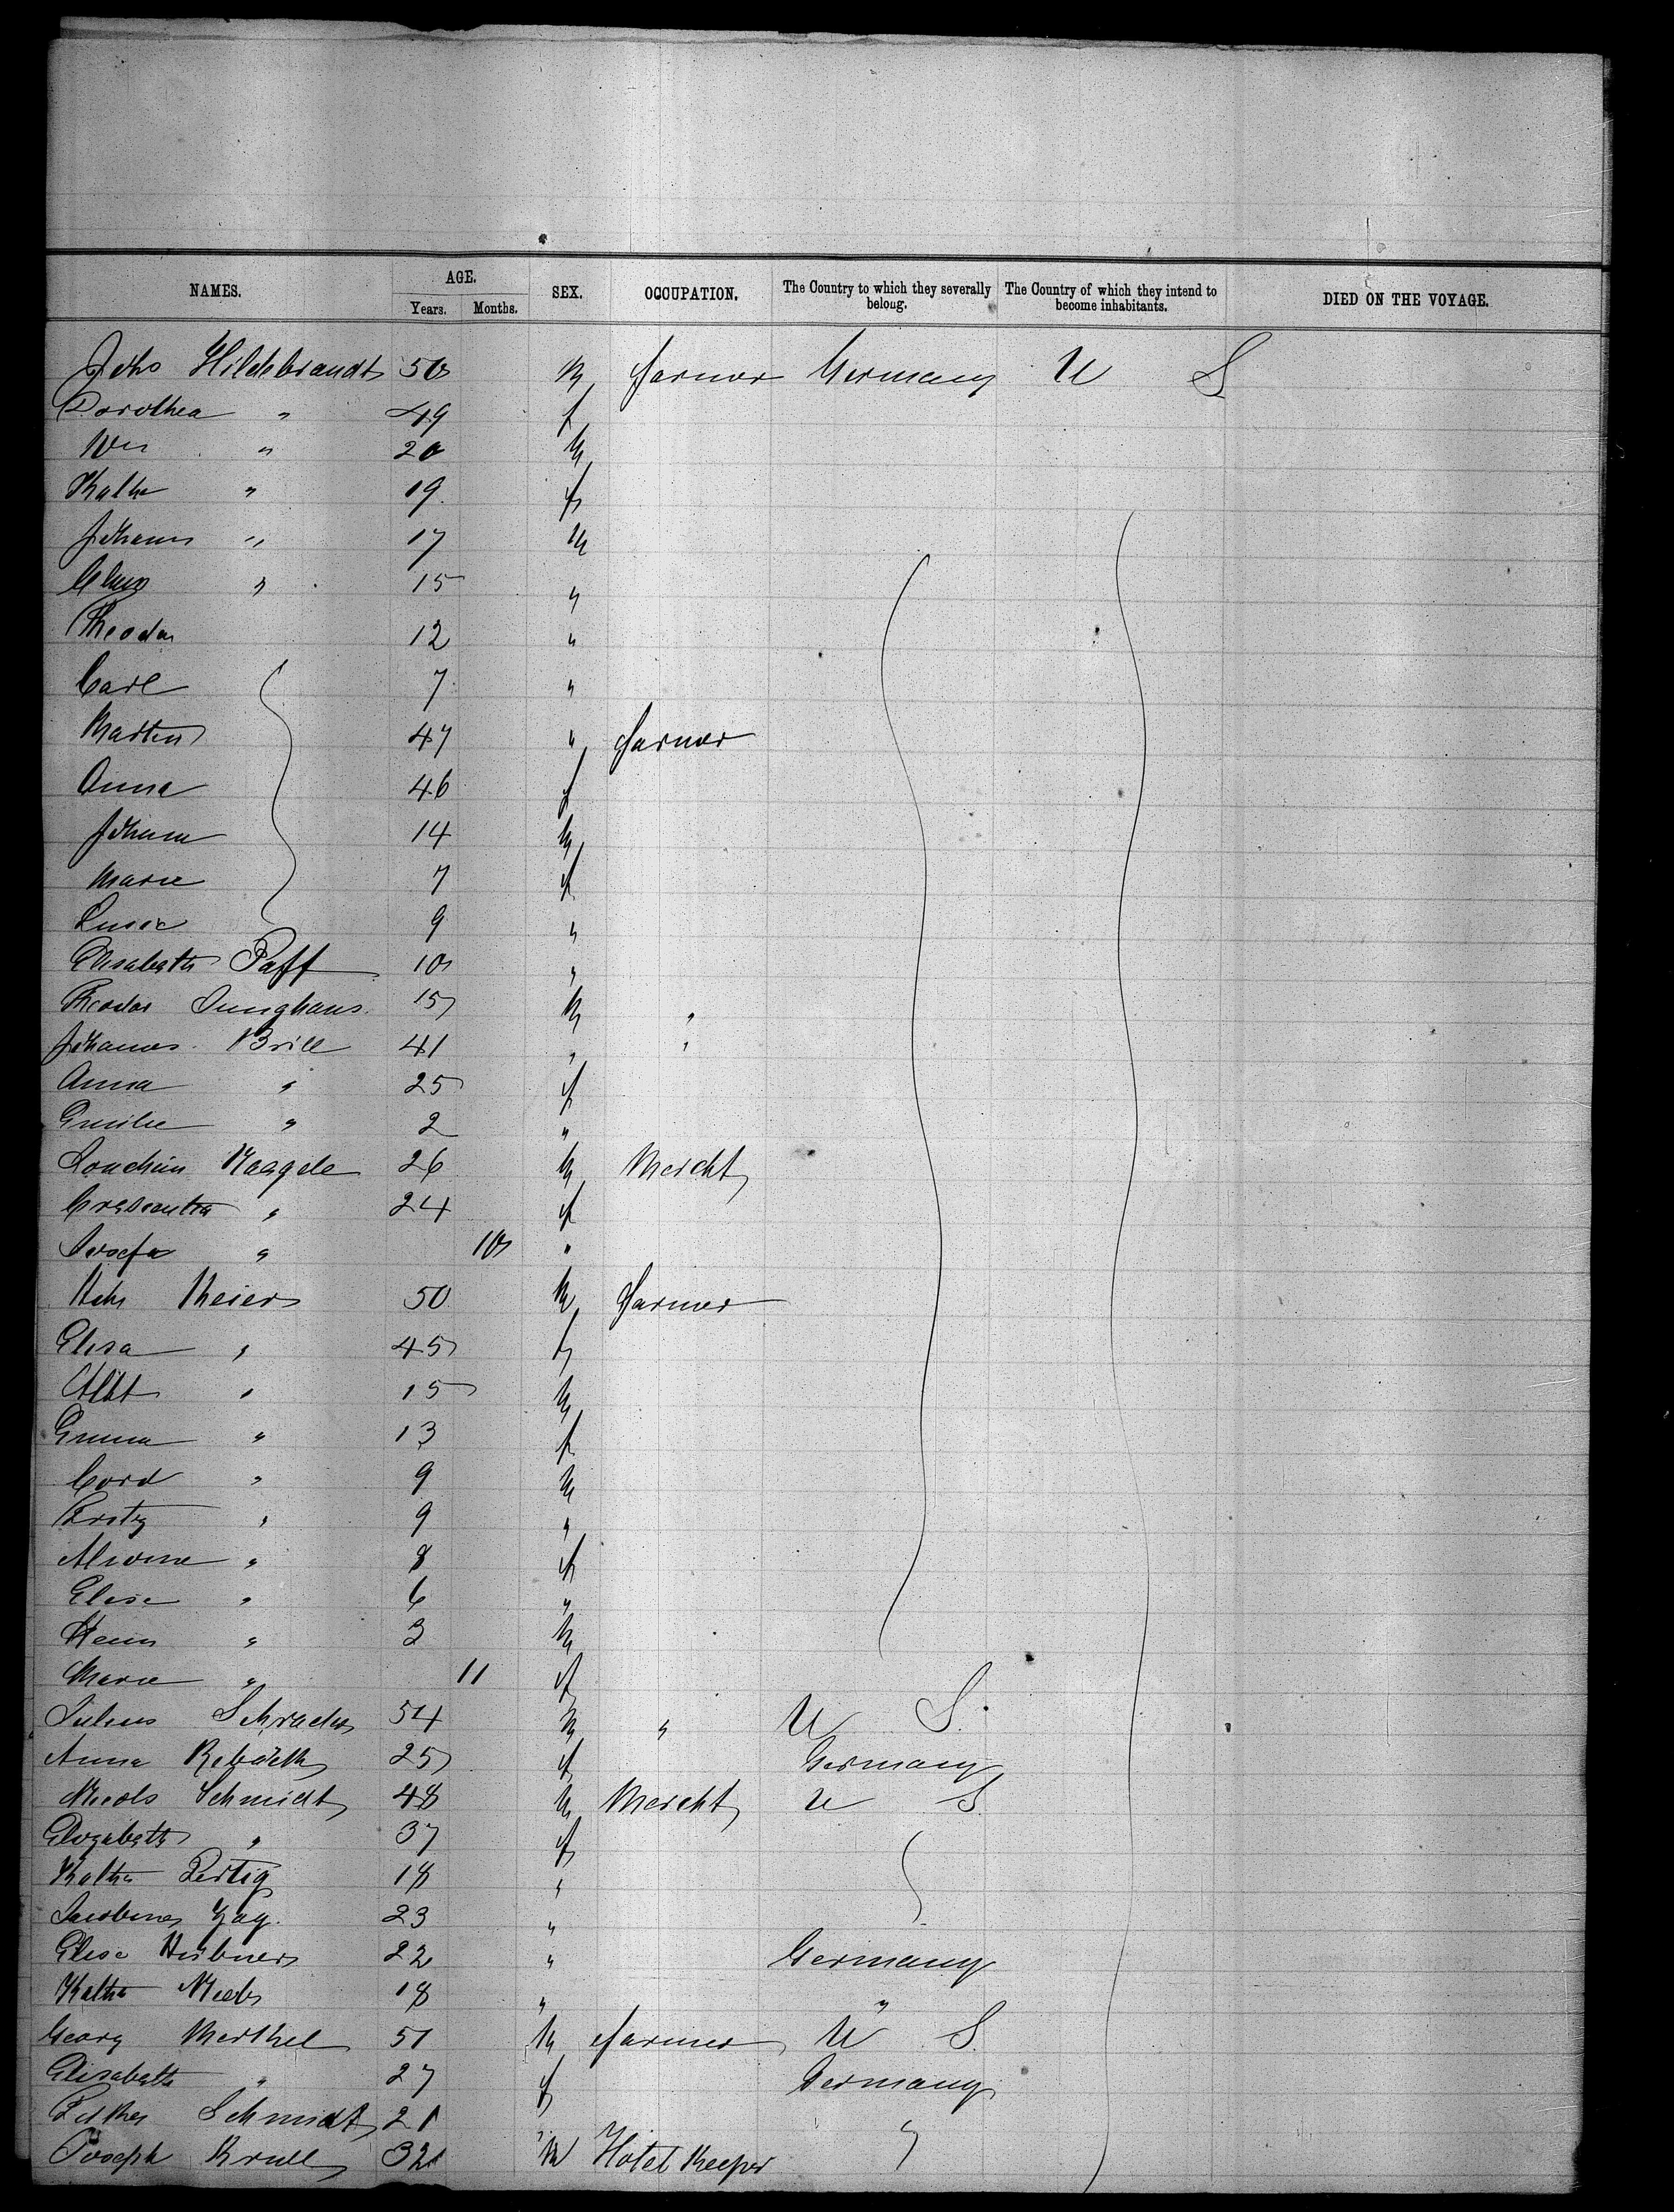 NAMES. AGE. SEX. OCCUPATION. The Country to which they severally belong. The Country of which they intend to become inhabitants. DIED ON THE VOYAGE.
Years. Months.
Johs Hildebrandt 50 M farmer Germany U S
Dorothea " 49 f
" 20 M
Kathe " 19 f
Johann " 17 M
" 15 "
Theodor 12 "
Carl 7 "
Marten 47 " farmer
Anna 46 f
Johann 14 M
Marie 7 f
9 "
Elisabeth Paff 10 "
Theodor Junghans 15 M "
Johannes Brill 41 " "
Anna " 25 f
Emilie " 2 "
Joachim Naegele 26 M Mercht
Crescentia " 24 f
Josefa " 10 "
Meier 50 M farmer
Elisa " 45 f
Albt " 15 M
Emma " 13 f
Cord " 9 M
" 9 "
Alwine " 8 f
Elise " 6 "
Hein " 3 M
Marie " 11 f
Julius Schrader 54 M " U S.
Anna 25 f Germany
Schmidt 48 M Mercht U S.
Elizabeth " 37 f
Kathe 18 "
23 "
Elise Hübner 22 " Germany
Kathe 18 " "
Georg Merkhel 51 M farmer U S.
Elisabeth " 27 f Germany
Schmidt 21 " "
Joseph Krull 32 M Hotel Keeper